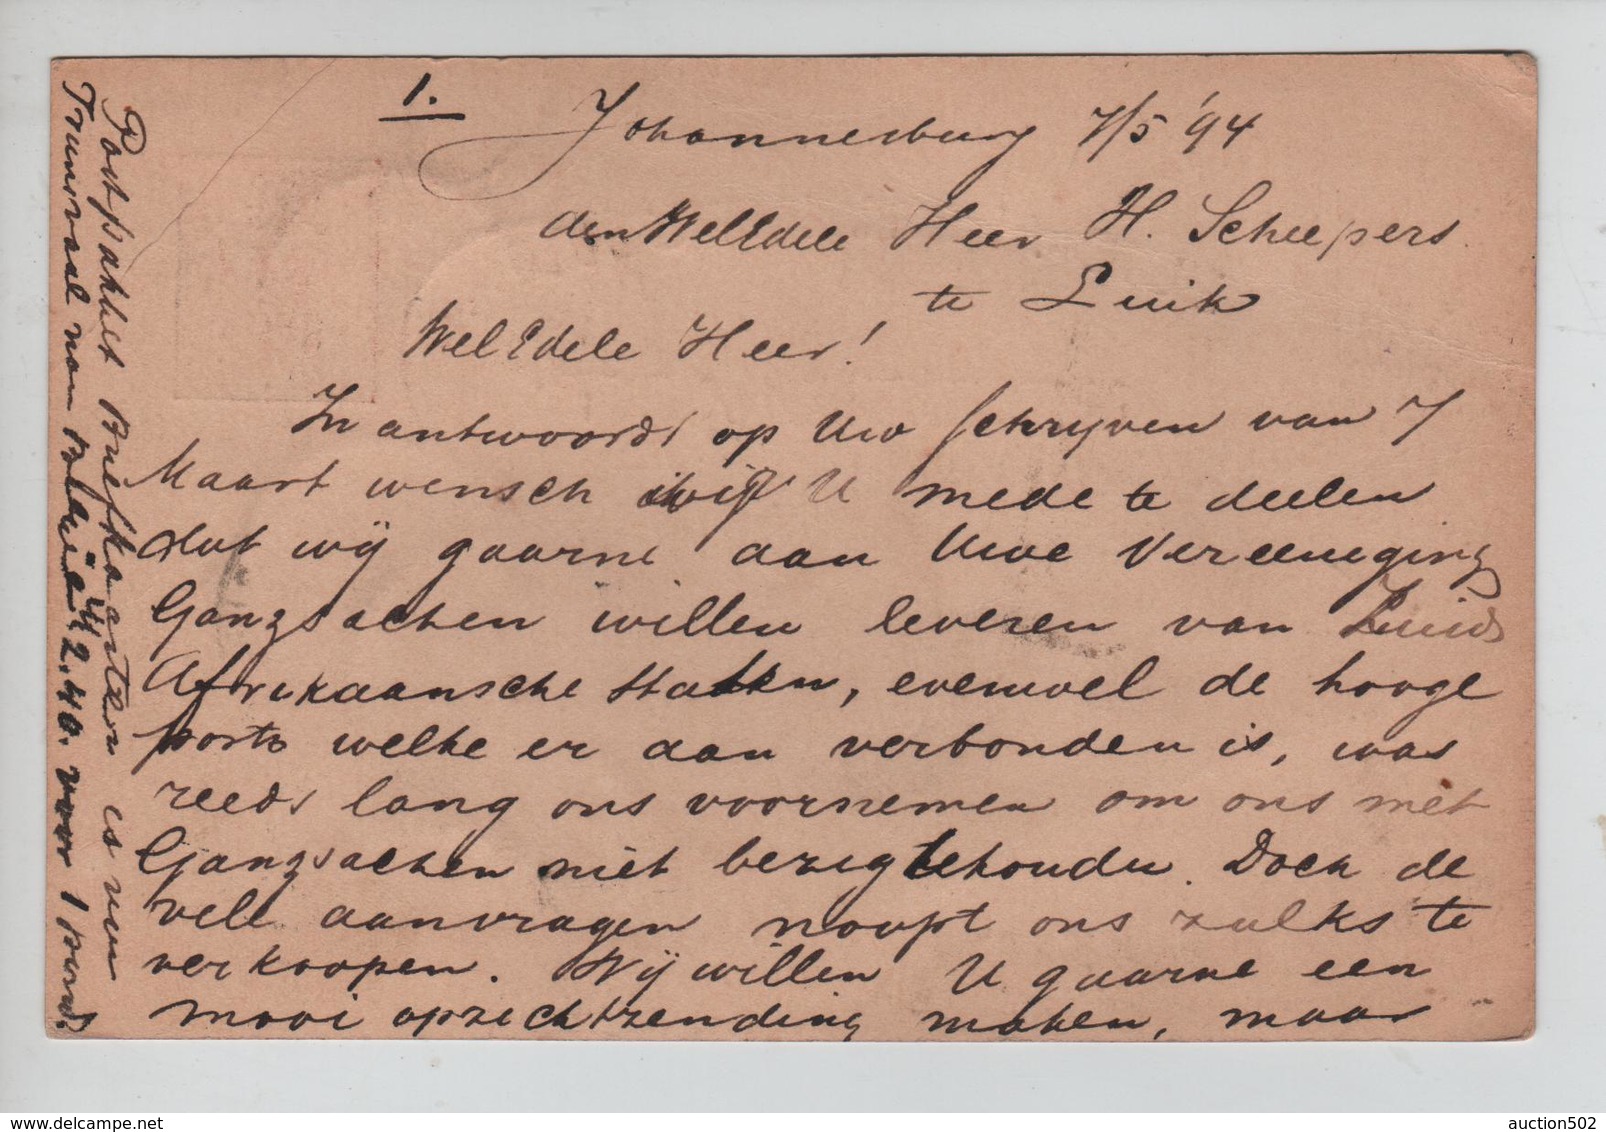 1.
Johannesburg 7/5 '94
den WelEdele Heer H. Scheepers.
te Luik
WelEdele Heer!
In antwoord op Uw schrijven van 7
Maart wensch wij U mede te deelen
dat wij gaarne aan Uwe Vereeniging
Ganzsachen willen leveren van Zuid
Afrikaansche Staten, evenwel de hooge
porto welke er aan verbonden is, was
reeds lang ons voornemen om ons met
Ganzsachen niet bezig te houden. Doch de
vele aanvragen noopt ons zulks te
verkoopen. Wij willen U gaarne een
mooi opzichtzending maken, maar
Postpakket Briefkaarten is van
Transvaal naar Belgïen fr 2.40. voor 1 pond.
auction502